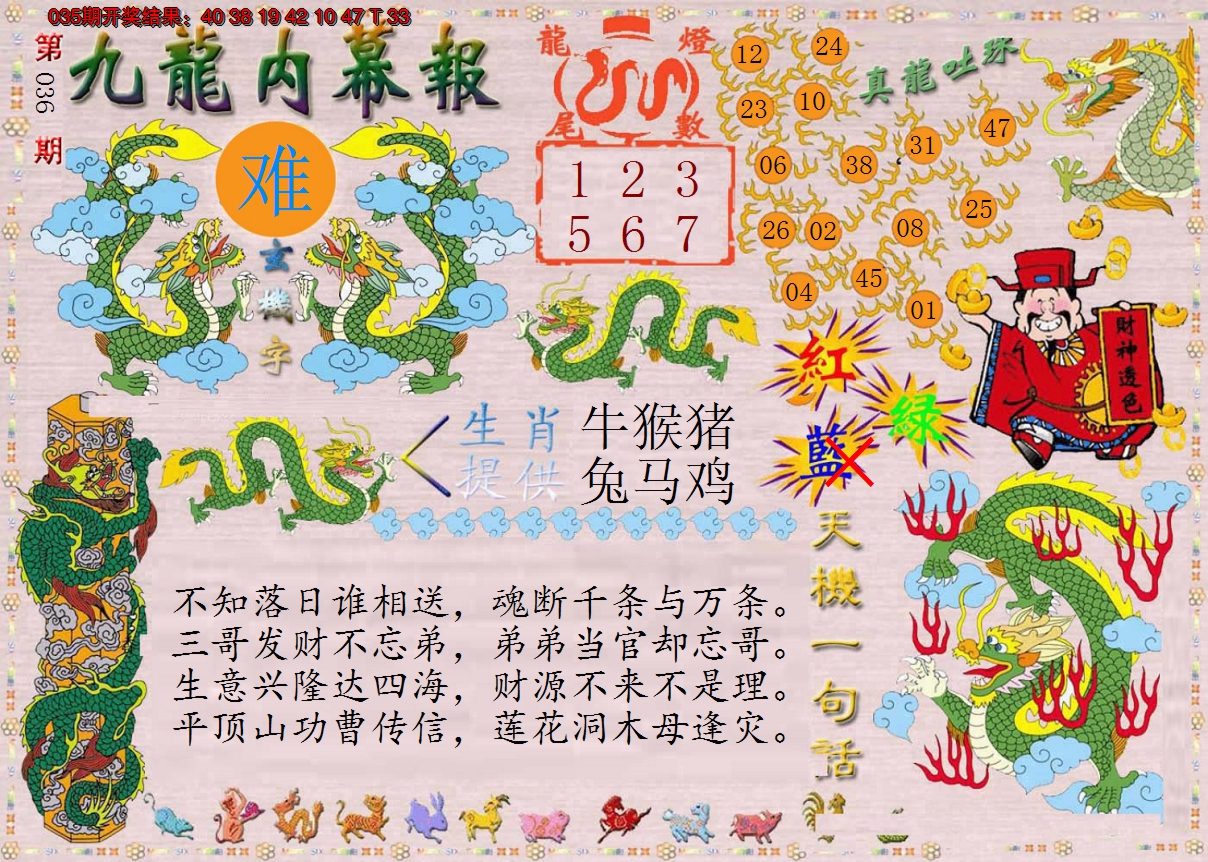 035期开奖结果：40 38 19 42 10 47 T 33
第036期
九龍内幕報
难
玄機字
龍燈
尾數
1 2 3
5 6 7
真龍吐珠
12 24
23 10
06 38 31 47
26 02 08 25
04 45 01
財神透色
紅
綠
藍
生肖
提供
牛猴猪
兔马鸡
天機一句話
不知落日谁相送，魂断千条与万条。
三哥发财不忘弟，弟弟当官却忘哥。
生意兴隆达四海，财源不来不是理。
平顶山功曹传信，莲花洞木母逢灾。